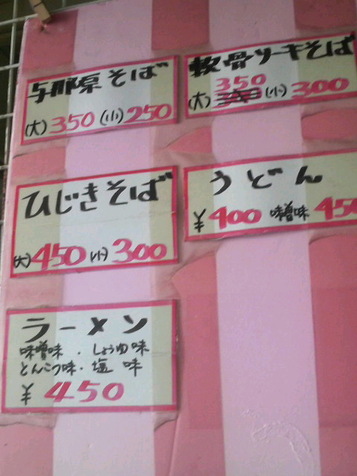 与那原そば
(大)350 (小)250
軟骨ソーキそば
350
(大) (小)300
ひじきそば
(大)450 (小)300
うどん
¥400 味噌味 450
ラーメン
味噌味・しょうゆ味
とんこつ味・塩味
¥450